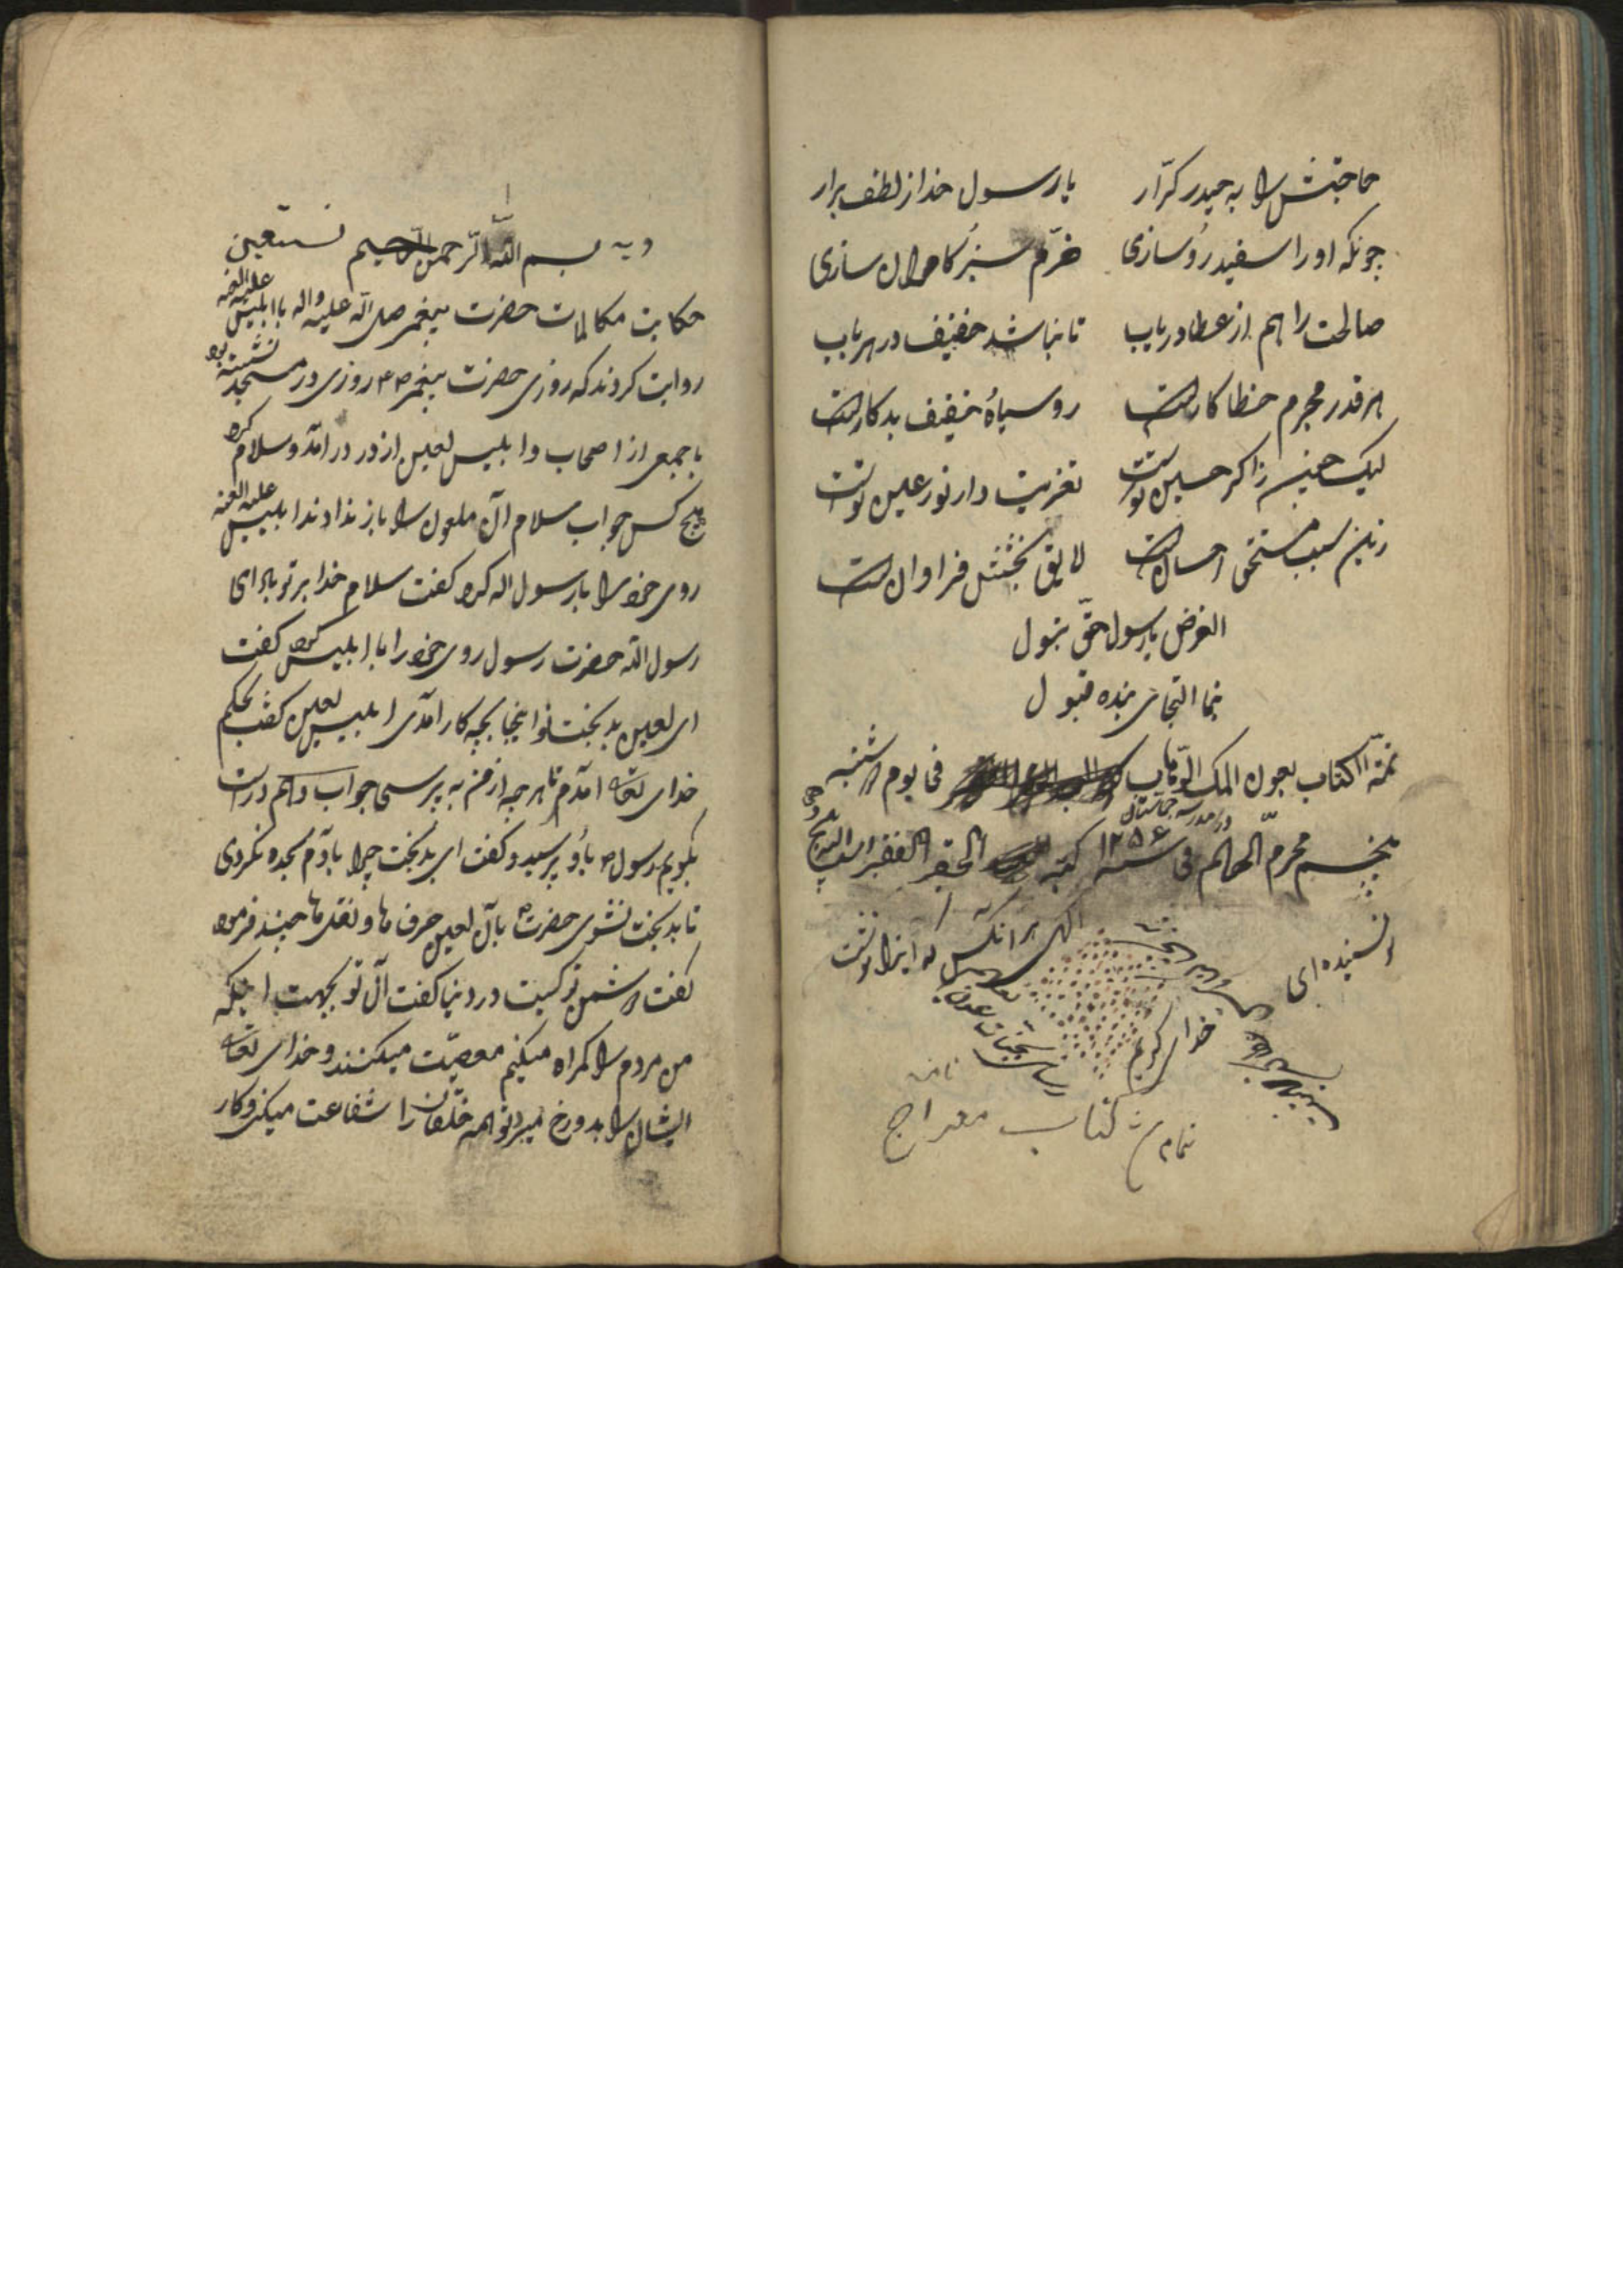 حاجتش را به حیدر کرّار یا رسول خدا ز لطف برار
چونکه او را سفید رُو سازی خرّم سبز کامران سازی
صالحت را هم از عطا دریاب تا نباشد خفیف در هر باب
هر قدر مجرم خطا کارست رو سیاهُ خفیف بدکارست
لیک چینه زاکر حسین توست تعزیت دار نور عین توست
زین سبب مستحق احسانست لایق بخشش فراوانست
الغرض یا رسول حقّ بتول
بنما التجای بنده قبول
تمّة الکتاب بعون الملک الوّهاب فی یوم شنبه
پنجم محرّم الحرام فی سنه ۱۲۵۶ کتبه الحقیر الفقیر
در مدرسه
الهی هر آنکس که اینرا نوشت
خدای کریم
تمام شد کتاب معراج
و به بسم الله الرّحمن الرّحیم نستعین
حکایت مکالمات حضرت پیغمبر صلی الله علیه واله با ابلیس علیه العنه
روایت کردند که روزی حضرت پیغمبر ص روزی در مسجد نشسته بود
با جمعی از اصحاب و ابلیس لعین از در درامد و سلام کرد
هیچ کس جواب سلام آن ملعون را باز ندادند ابلیس علیه العنه
روی خود را با رسول اله کرد کفت سلام خدا بر تو باد ای
رسول الله حضرت رسول روی خود را با ابلیس کرد کفت
ای لعین بد بخت تو اینجا بچه کار آمدی ابلیس لعین کفت بحکم
خدای تعاله آمدم تا هر چه از من به پرسی جواب دهم و راست
بکویم رسول ص باُو پرسید و کفت ای بدبخت چرا بادم سجده نکردی
تا بدبخت نشوی حضرت ص با آن لعین حرف ها و نقل ها چند فرمود
کفت دشمن تر کیست در دنیا کفت آن تو بجهت اینکه
من مردم را کمراه میکنیم معصیّت میکنند و خدای تعاله
ایشان را بدوزخ میبرد تو همه خلقان را شفاعت میکنی و کار